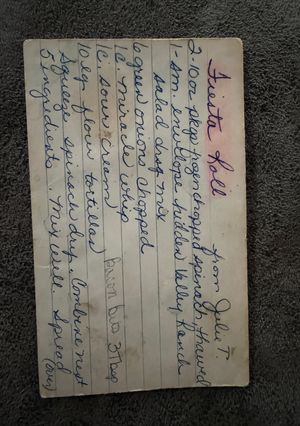 Fiesta Roll from Julie T.
2-10 oz pkgs frozen chopped spinach thawed
1-sm. envelope Hidden Valley Ranch
salad dreg mix
6 green onions chopped
1c. miracle whip
1c. sour cream
10 lg. flour tortillas
Squeeze spinach dry. Combine next
5 ingredients. Mix well. Spread
(over)